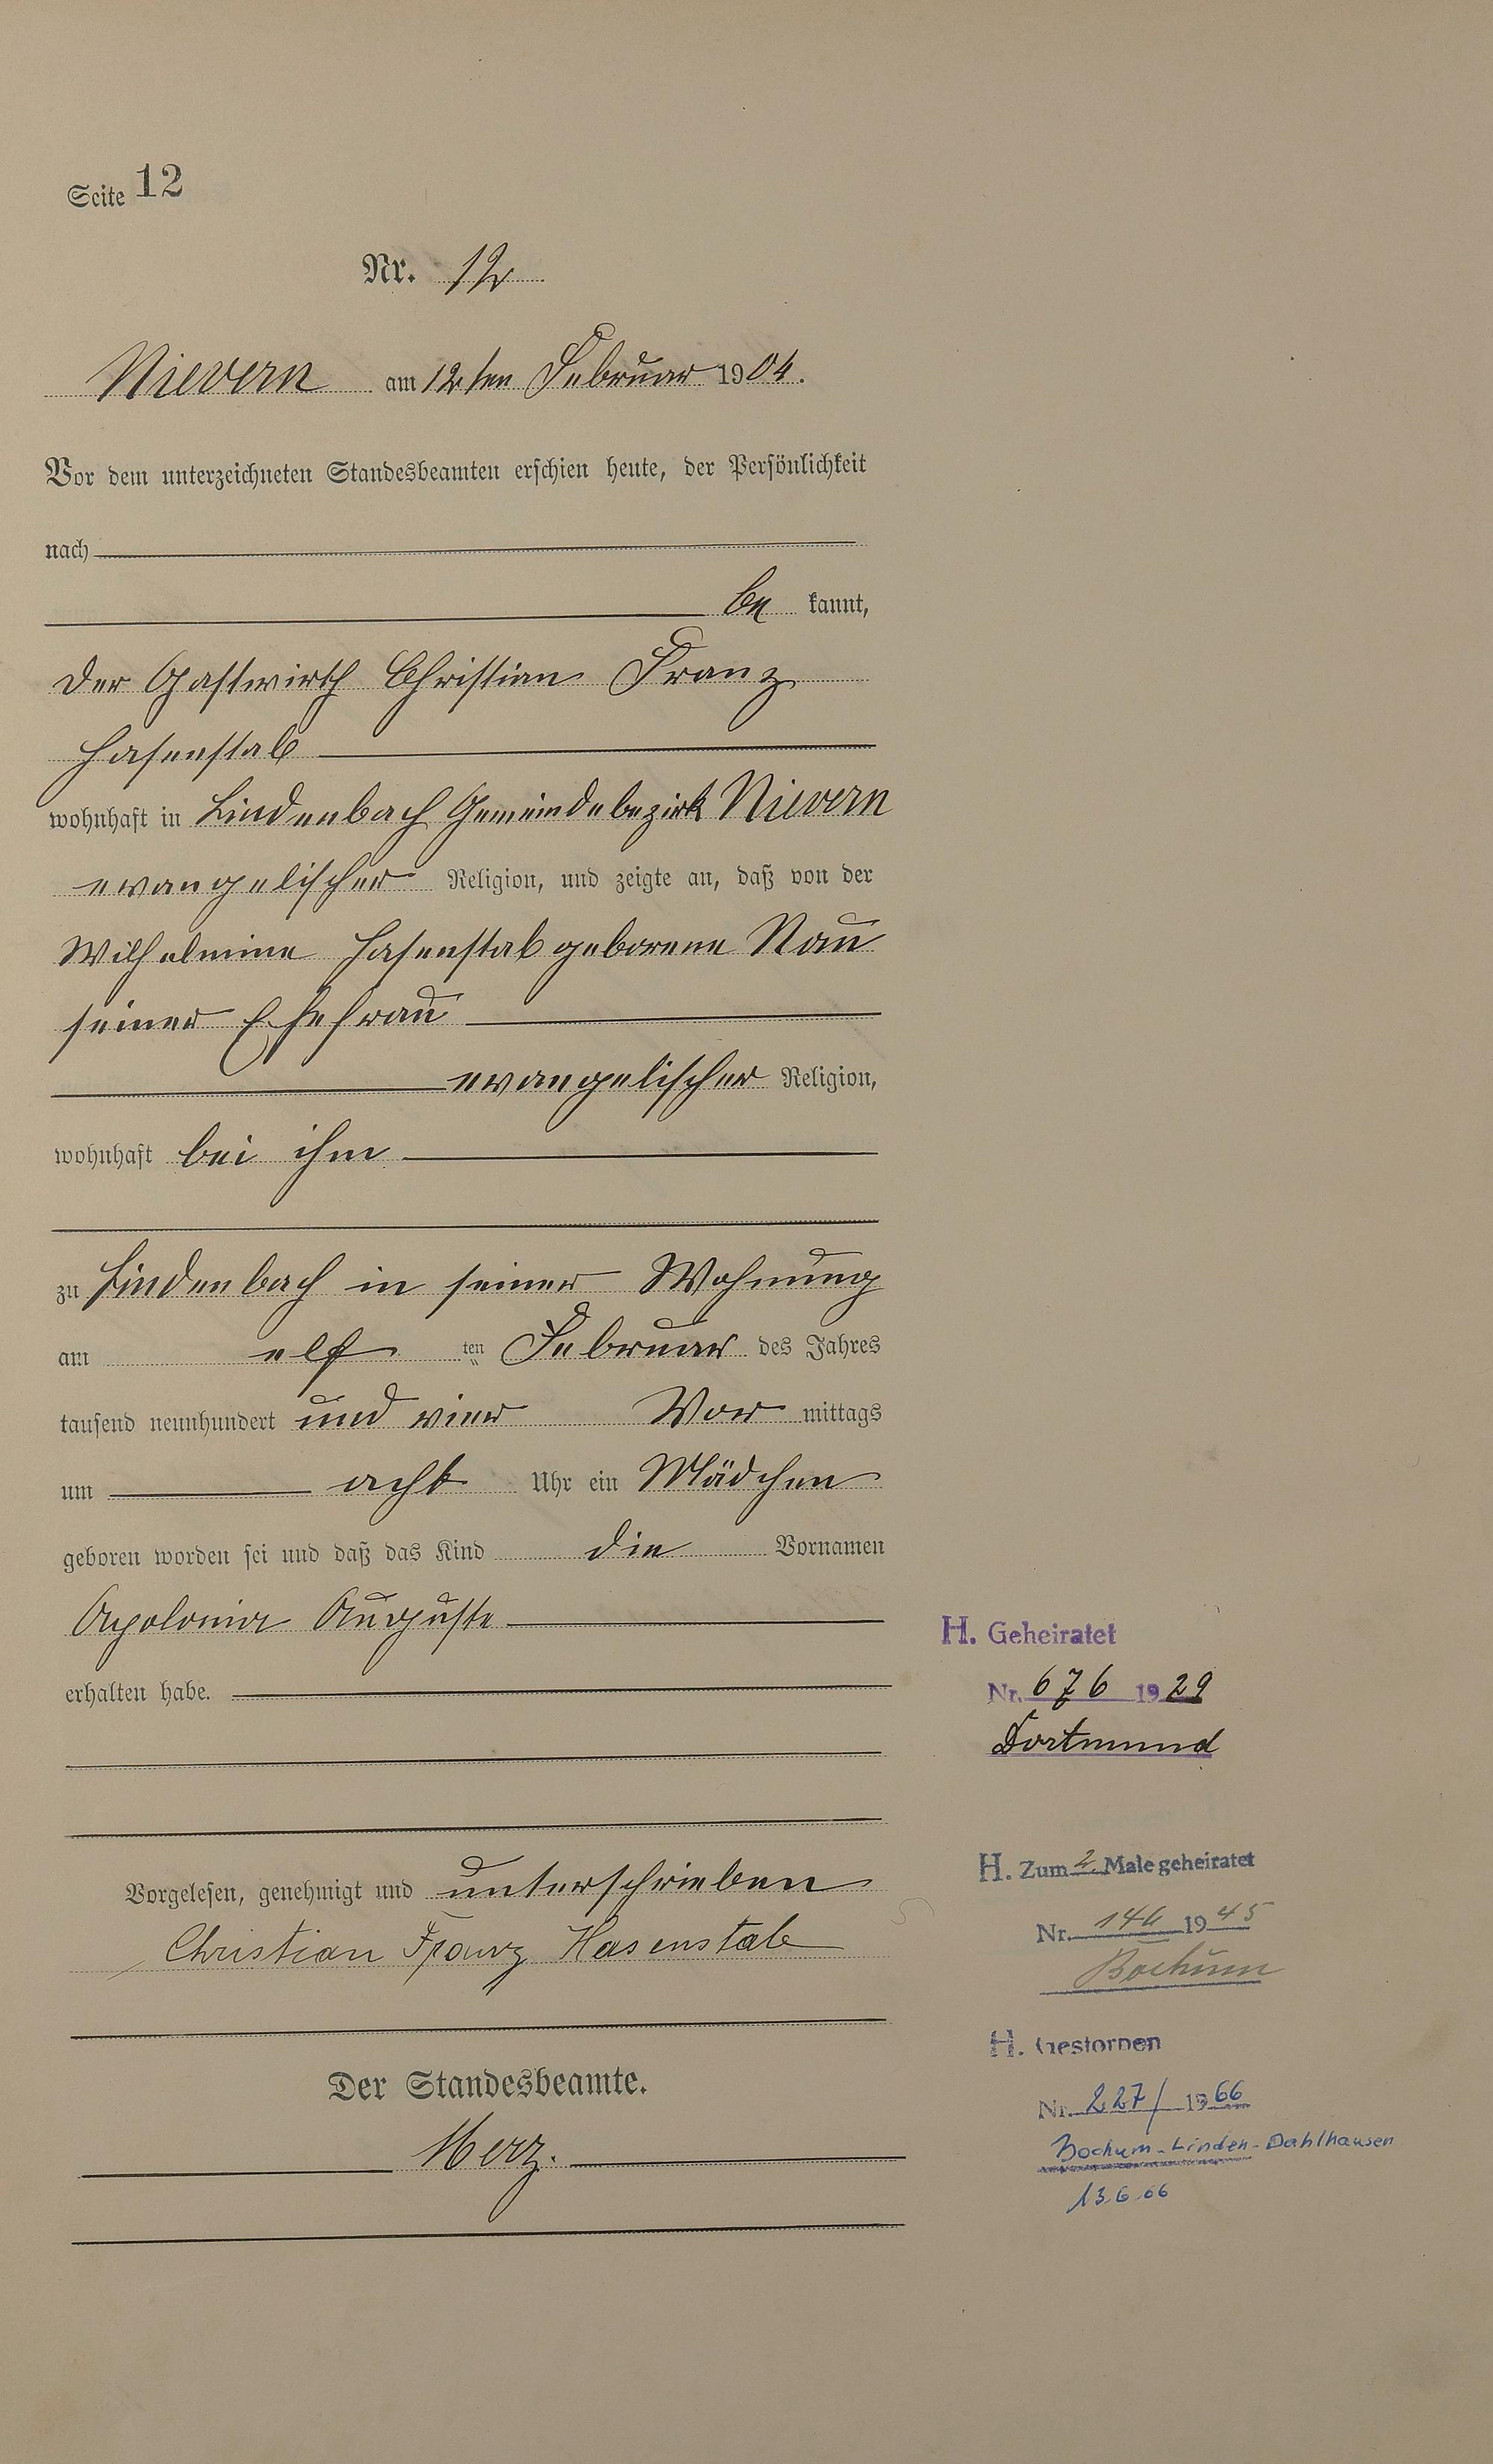 Seite 12
Nr. 12
Nievern am 12ten Februar 1904.
Vor dem unterzeichneten Standesbeamten erschien heute, der Persönlichkeit
nach
be kannt,
der Gastwirth Christian Franz
Hasenstab
wohnhaft in Lindenbach Gemeindebezirk Nievern
evangelischer Religion, und zeigte an, daß von der
Wilhelmine Hasenstab geborene Nau
seiner Ehefrau
evangelischer Religion,
wohnhaft bei ihm
zu Lindenbach in seiner Wohnung
am elf ten Februar des Jahres
tausend neunhundert und vier Vor mittags
um acht Uhr ein Mädchen
geboren worden sei und daß das Kind die Vornamen
Apolonia Auguste
erhalten habe.
Vorgelesen, genehmigt und unterschrieben
Christian Franz Hasenstab
Der Standesbeamte.
Merz.
H. Geheiratet
Nr. 676 1929
Dortmund
H. Zum 2. Male geheiratet
Nr. 1945
Bochum
H. Gestorben
Nr. 227/ 1966
Bochum-Linden-Dahlhausen
13.6.66